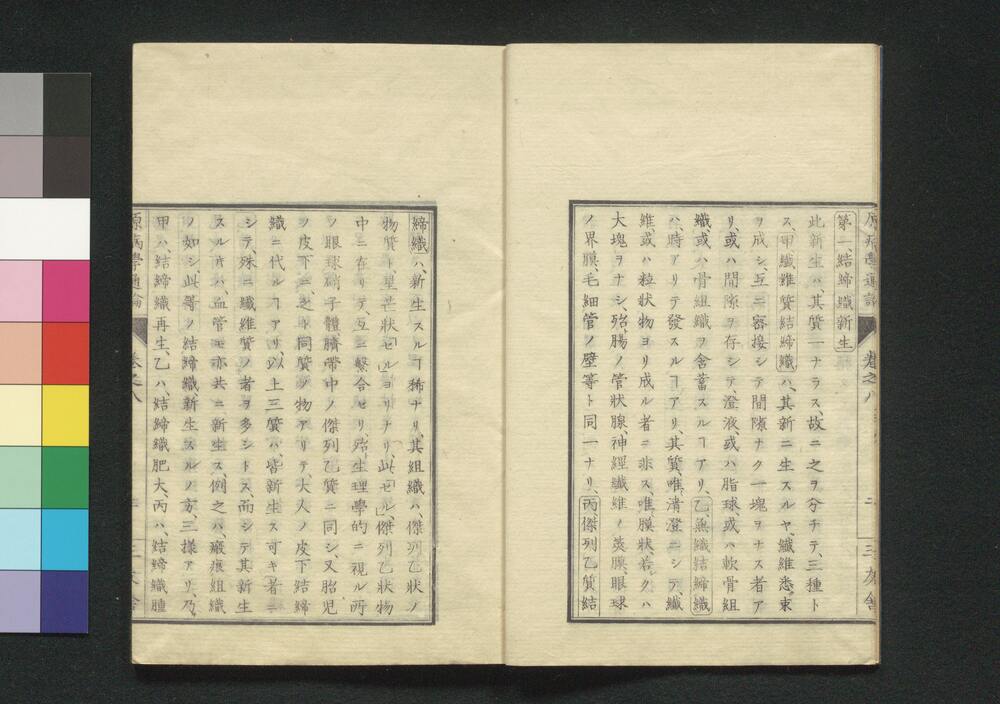 原病學通論
卷之八
三友舎
第一、結締織新生
此新生ハ、其質一ナラス、故ニ之ヲ分チテ、三種ト
ス、甲纖維質結締織ハ、其新ニ生スルヤ、纖維悉ク束
ヲ成シ、互ニ密接シテ間隙ナク一塊ヲナス者ア
リ、或ハ間隙ヲ存シテ、澄液或ハ脂球或ハ軟骨組
織或ハ骨組織ヲ含蓄スルヿアリ、乙無織結締織
ハ、時アリテ發スルヿアリ、其質、唯清澄ニシテ、纖
維或ハ粒狀物ヨリ成ル者ニ非ス、唯膜狀若クハ
大塊ヲナシ、殆腸ノ管狀腺、神經纖維ノ莢膜、眼球
ノ界膜、毛細管ノ壁等ト同一ナリ、丙、傑列乙質結
締織ハ、新生スルヿ稀ナリ、其組織ハ、傑列乙狀ノ
物質ト、星芒狀「セルレ」ヨリナリ、此「セルレ」傑列乙狀物
中ニ在リテ、互ニ繫合セリ、殆生理學的ニ視ル所
ノ眼球硝子體、臍帶中ノ傑列乙質ニ同シ、又胎児
ノ皮下ニ、之ト同質ノ物アリテ、大人ノ皮下結締
織ニ代ルヿアリ、以上三質ハ、皆新生ス可キ者ニ
シテ、殊ニ纖維質ノ者ヲ多シトス、而シテ其新生
スルトキハ、血管モ亦共ニ新生ス、例之ハ、瘢痕組織、
ノ如シ、此等ノ結締織、新生スルノ方、三樣アリ、乃
甲ハ、結締織再生、乙ハ、結締織肥大、丙ハ、結締織腫
原病學通論
卷之八
三友舎